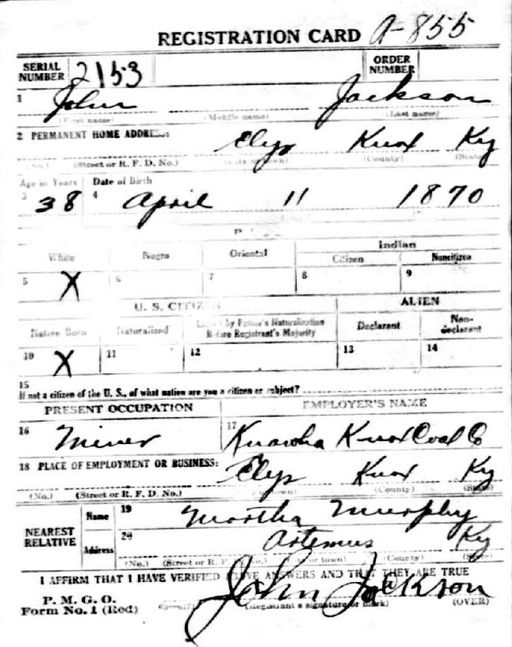 REGISTRATION CARD A-855
SERIAL NUMBER 2153 ORDER NUMBER
1 John Jackson
(First name) (Middle name) (Last name)
2 PERMANENT HOME ADDRESS: Elys Knox Ky
(No.) (Street or R. F. D. No.) (City or town) (County) (State)
Age in Years Date of Birth
3 38 4 April 11 1870
Indian
White Negro Oriental Citizen Noncitizen
5 X 6 7 8 9
U. S. CITIZEN ALIEN
Native Born Naturalized by Father's Naturalization Before Registrant's Majority Declarant Non-declarant
10 X 11 12 13 14
15
If not a citizen of the U. S., of what nation are you a citizen or subject?
PRESENT OCCUPATION EMPLOYER'S NAME
16 Miner 17 Knox Coal Co
18 PLACE OF EMPLOYMENT OR BUSINESS: Elys Knox Ky
(No.) (Street or R. F. D. No.) (County) (State)
NEAREST RELATIVE Name 19 Martha Murphy
Address 20 Artemus Ky
(No.) (Street or R. F. D. No.) (City or town) (County) (State)
I AFFIRM THAT I HAVE VERIFIED ANSWERS AND THAT THEY ARE TRUE
P. M. G. O.
Form No. 1 (Red) John Jackson
(Registrant's signature or mark) (OVER)